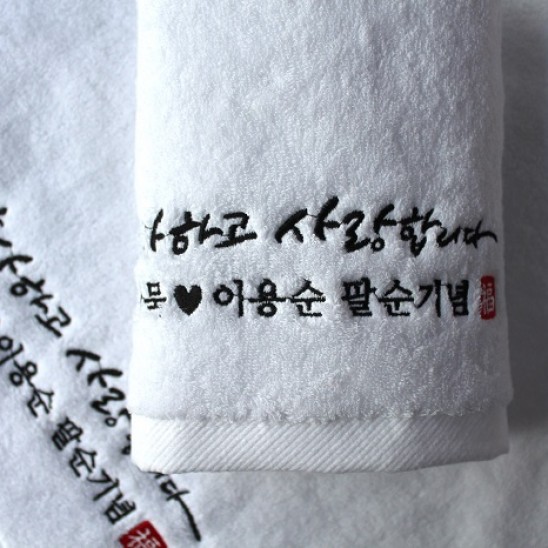 하고 사랑합니다
묵 ♥ 이용순 팔순기념 福
하고 사랑합니다
이용순 팔순기념 福